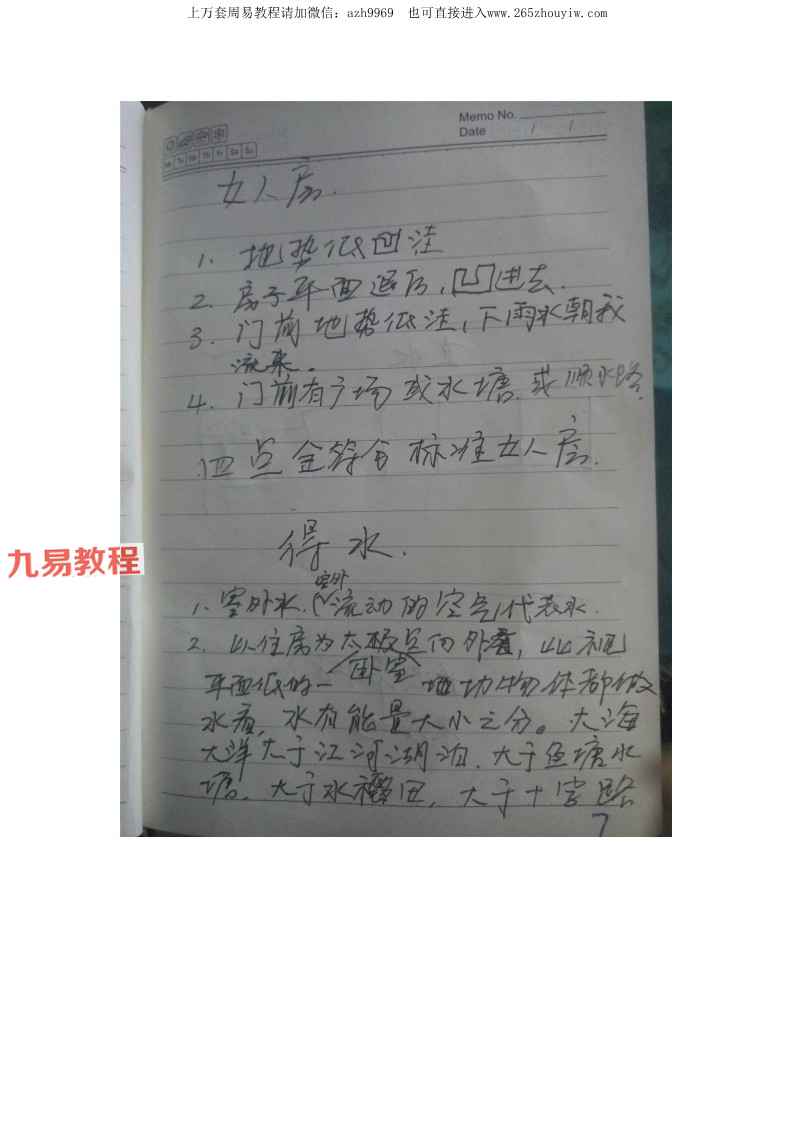 上万套周易教程请加微信：azh9969 也可直接进入www.265zhouyiw.com
Memo No.
Date / /
Mo Tu We Th Fr Sa Su
女人房.
1. 地势低凹洼
2. 房子平面退后，凹进去.
3. 门前地势低洼，下雨水朝我
流来。
4. 门前有广场或水塘.或顺水路.
四点全符合标准女人房.
九易教程
得水.
室外
1、室外水.（流动的空气代表水.
2. 以住房为太极点向外看，比视
卧室
平面低的一 地功物体都做
水看，水有能量大小之分。大海
大洋大于江河湖泊.大于鱼塘水
塘.大于水稻田，大于十字路
7